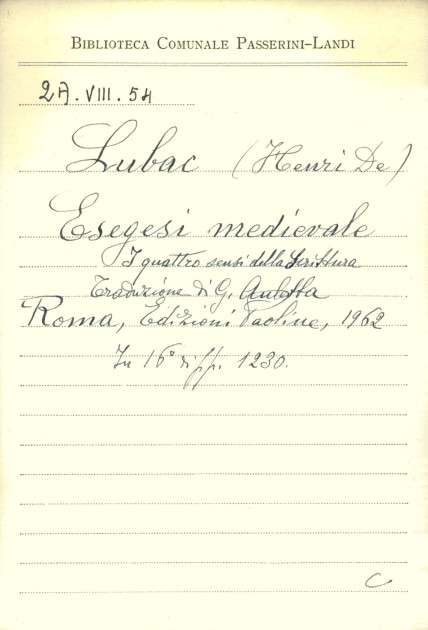 BIBLIOTECA COMUNALE PASSERINI-LANDI
2A.VIII.54
Lubac (Henri De)
Esegesi medievale
I quattro sensi della Scrittura
Traduzione di G. Auletta
Roma, Edizioni Paoline, 1962
In 16° di pp. 1230.
C